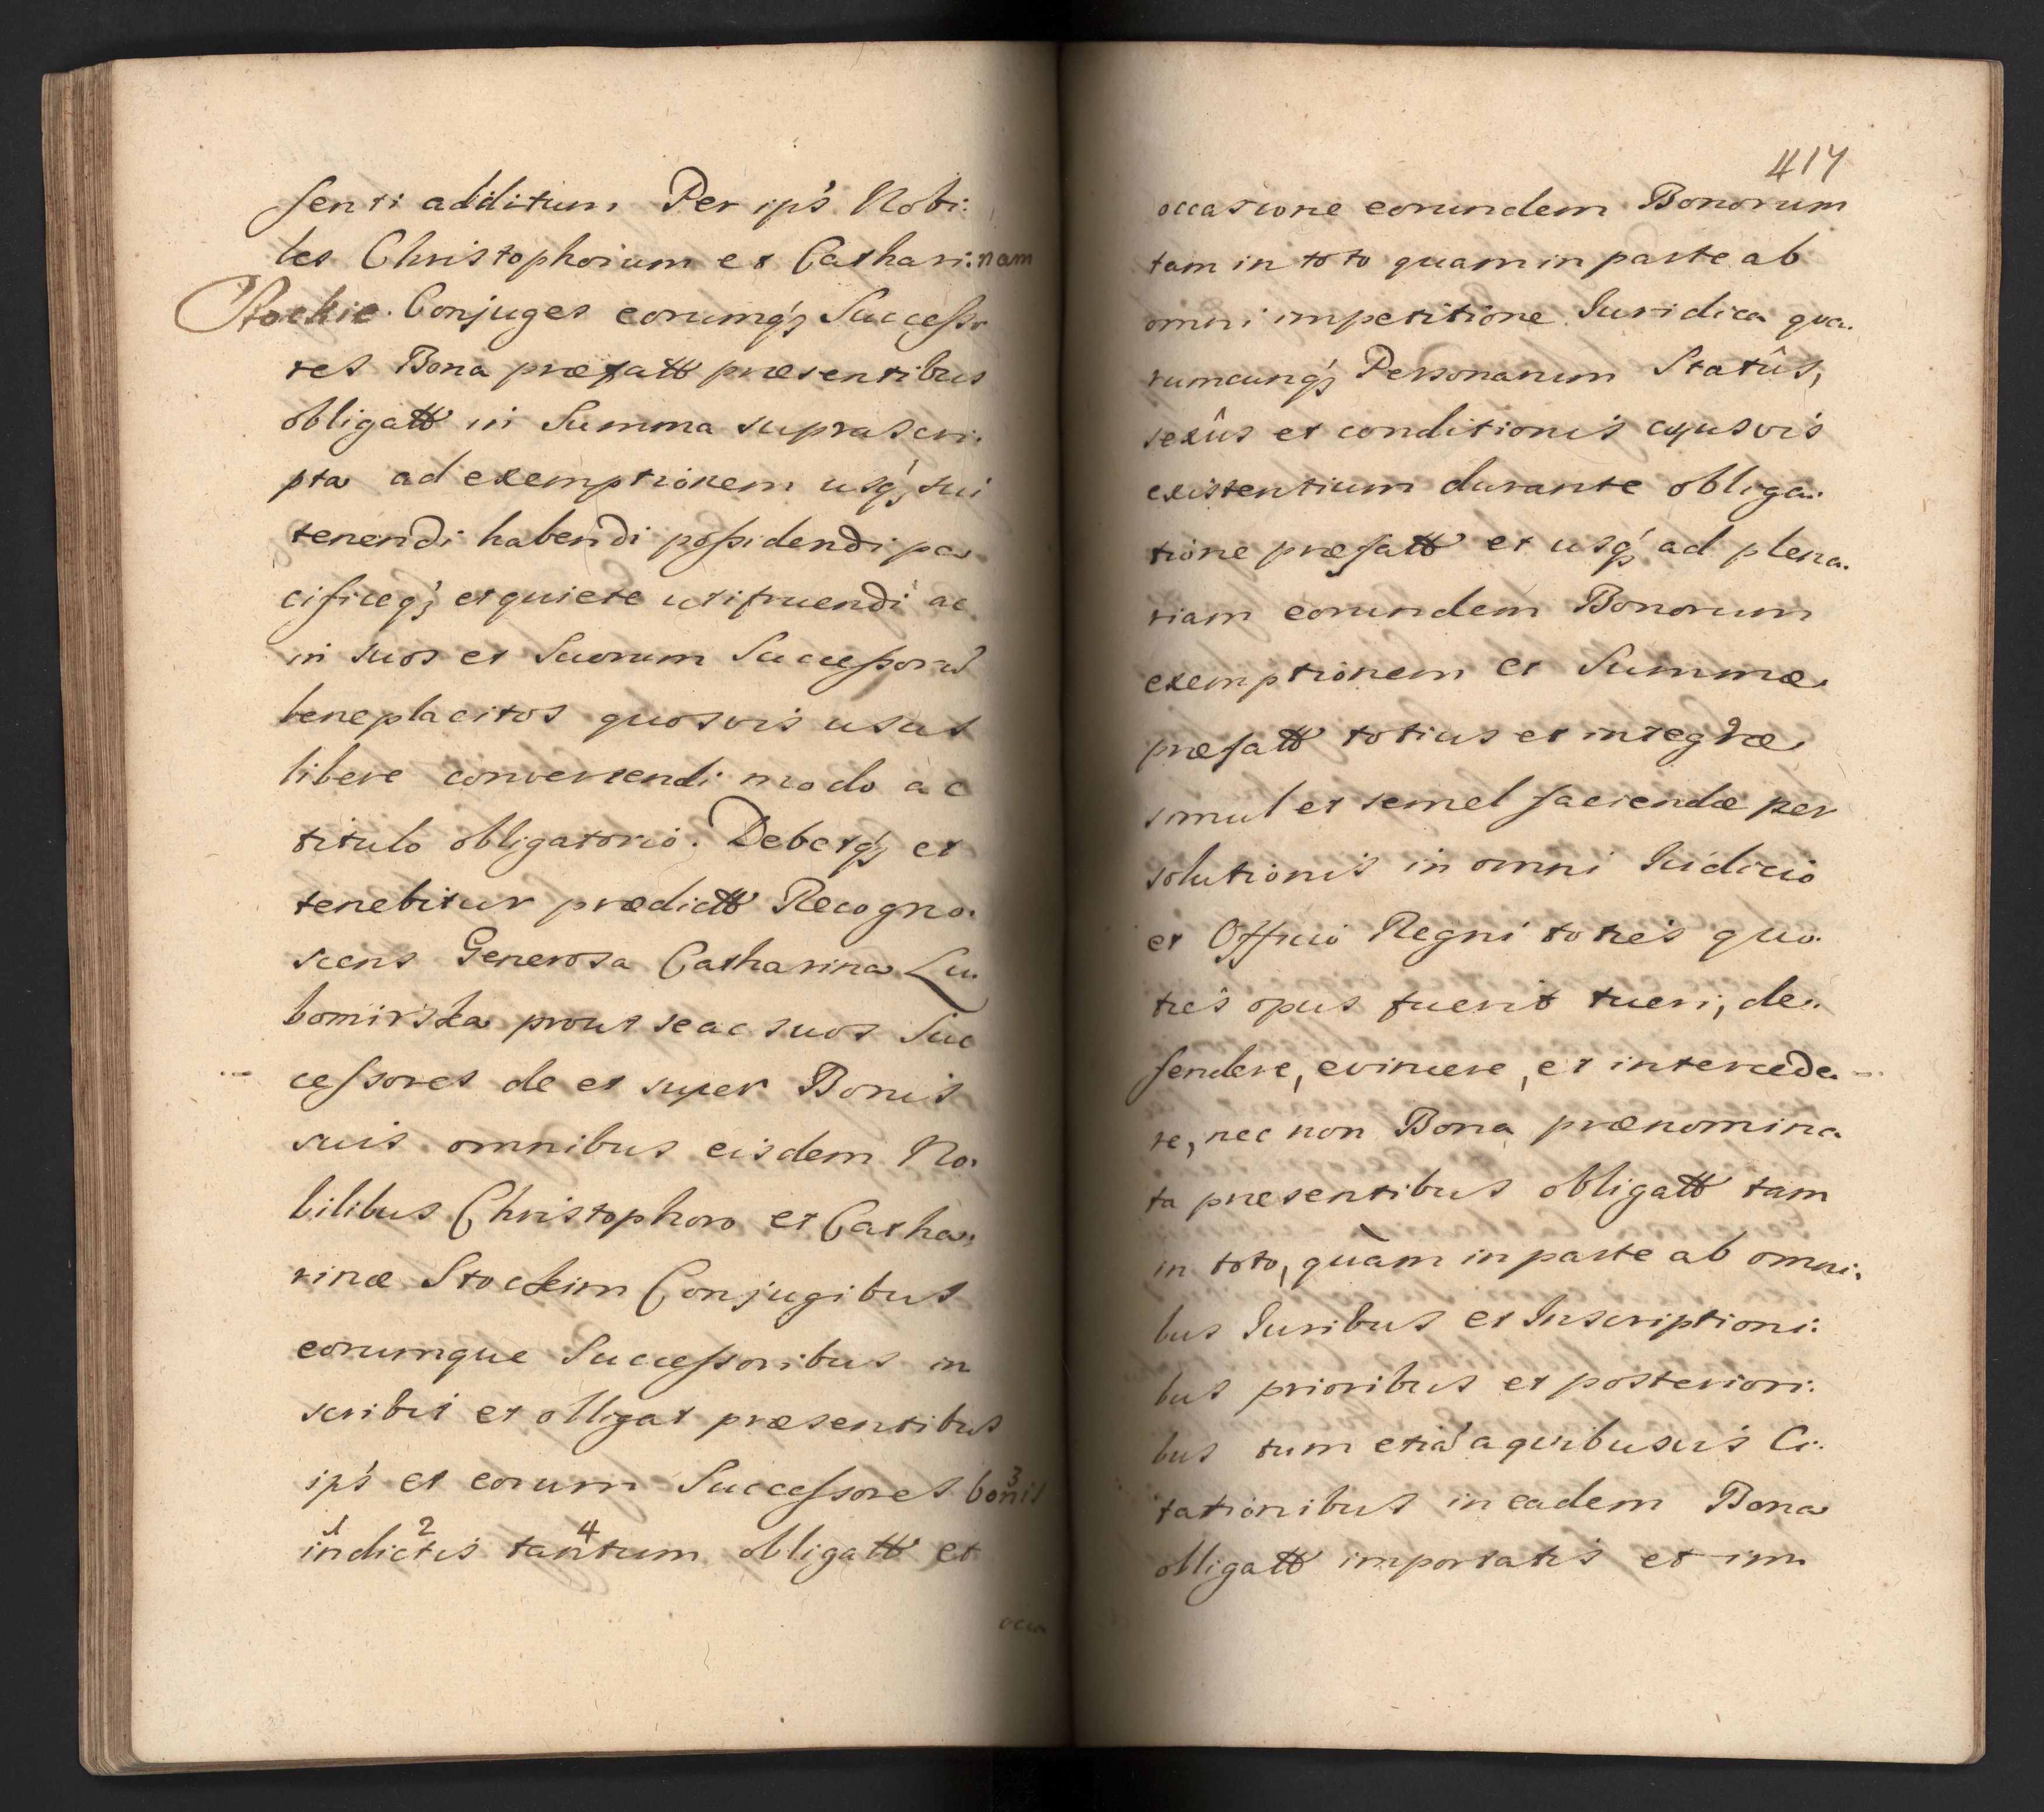 senti additum Per ips Nobi:
les Christophorum et Cathari:nam
Stockie Conjuges eorumq; Successo
res Bona præfatt præsentibus
obligatt in Summa suprascri:
pta ad exemptionem usq; sui
tenendi habendi possidendi pa
cificeq; et quiete utifruendi ac
in suos et Suorum Successorũ
beneplacitos quosvis usus
libere convertendi modo ac
titulo obligatorio. Debetq; et
tenebitur prædictt Recogno:
scens Generosa Catharina Lu:
bomirska prout se ac suos Suc
cessores de et super Bonis
suis omnibus eisdem No:
bilibus Christophoro et Catha:
rinæ Stockim Conjugibus
eorumque Successoribus in
scribit et obligat præsentibus
ips et eorum Successores bo3nis
1 2 4
indictis tantum obligatt et
occa
417
occasione eorundem Bonorum
tam in toto quam in parte ab
omni impetitione Iuridica qua:
rumcunq; Personarum Statûs,
sexûs et conditionis cujusvis
existentium durante obliga:
tione præfatt et usq; ad plena:
riam eorundem Bonorum
exemptionem et Summæ
præfatt totius et integræ
simul et semel faciendæ per
solutionis in omni Iudicio
et Officio Regni toties quo:
ties opus fuerit tueri, de:
fendere, evincere, et intercede:
re, nec non Bona prænomina:
ta præsentibus obligatt tam
in toto, quàm in parte ab omni:
bus Iuribus et Inscriptioni:
bus prioribus et posteriori:
bus tum etiã a quibusvis Ci:
tationibus in eadem Bona
obligatt importatis et im